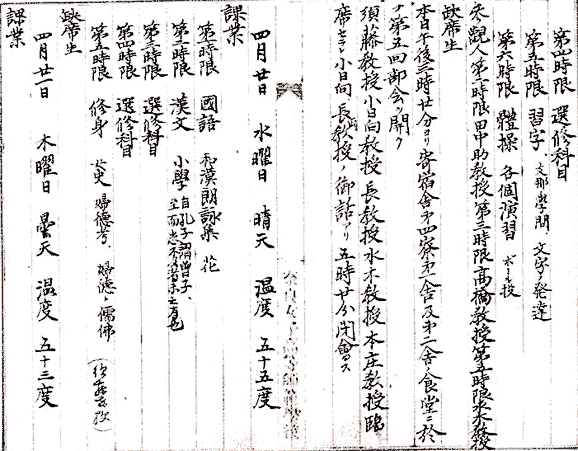 第四時限 選修科目
第五時限 習字 支那學問 文字ノ発達
第六時限 體操 各個演習 ボール投
参觀人第一時限田中助教授第三時限高橋教授第五時限水木教授
欠席生
本日午後三時廿分ヨリ寄宿舎第四寮第一舎及第二舎ノ食堂ニ於
テ第五回部会ヲ開ク
須藤教授小日向教授長教授水木教授本庄教授臨
席セラレ小日向長教授ノ御話アリ五時廿分閉會ス
四月廿日 水曜日 晴天 温度 五十五度
課業
第一時限 國語 和漢朗詠集 花
第二時限 漢文 小學 自孔子謂曾子、
第三時限 選修科目
第四時限 選修科目
第五時限 修身 女史 婦徳考 婦徳ト儒佛
欠席生
四月廿一日 木曜日 曇天 温度 五十三度
課業